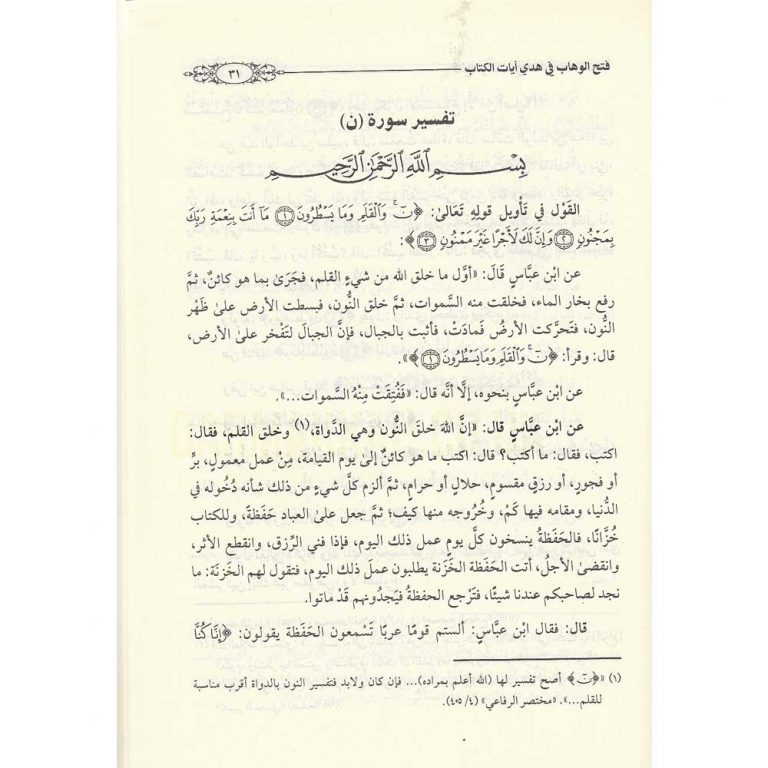 فتح الوهاب في هدي آيات الكتاب ٣١
تفسير سورة (ن)
بِسْمِ ٱللَّهِ ٱلرَّحْمَٰنِ ٱلرَّحِيمِ
القَوْل في تَأويل قولِهِ تَعَالىٰ: ﴿نٓ ۚ وَٱلْقَلَمِ وَمَا يَسْطُرُونَ ۝١ مَآ أَنتَ بِنِعْمَةِ رَبِّكَ
بِمَجْنُونٍ ۝٢ وَإِنَّ لَكَ لَأَجْرًا غَيْرَ مَمْنُونٍ ۝٣﴾:
عن ابْن عبَّاسٍ قَالَ: «أوَّل ما خلق الله من شيءٍ القلم، فجَرَىٰ بما هو كائنٌ، ثمَّ
رفع بخار الماء، فخلقت منه السَّموات، ثمَّ خلق النُّون، فبسطت الأرض علىٰ ظَهْر
النُّون، فتَحرَّكت الأرضُ فَمادَتْ، فأثبت بالجبال، فإنَّ الجبالَ لتَفْخر علىٰ الأرض،
قال: وقرأ: ﴿نٓ ۚ وَٱلْقَلَمِ وَمَا يَسْطُرُونَ ۝١﴾».
عن ابْن عبَّاسٍ بنحوه، إلَّا أنَّه قال: «فَفُتِقَتْ مِنْهُ السَّموات...».
عن ابْن عبَّاسٍ قال: «إنَّ اللهَ خلقَ النُّون وهي الدَّواة،(١) وخلق القلم، فقال:
اكتب، فقال: ما أكتب؟ قال: اكتب ما هو كائنٌ إلىٰ يوم القيامة، مِنْ عمل معمولٍ، برٍّ
أو فجورٍ، أو رزقٍ مقسومٍ، حلالٍ أو حرامٍ، ثمَّ ألزم كلَّ شيءٍ من ذلك شأنه دُخُوله في
الدُّنيا، ومقامه فيها كَمْ، وخُرُوجه منها كيف؛ ثمَّ جعل علىٰ العباد حَفَظَةً، وللكتاب
خُزَّانًا، فالحَفَظةُ ينسخون كلَّ يومٍ عمل ذلك اليوم، فإذا فني الرِّزق، وانقطع الأثر،
وانقضىٰ الأجلُ، أتت الحَفَظة الخَزَنة يطلبون عملَ ذلك اليوم، فتقول لهم الخَزنَة: ما
نجد لصاحبكم عندنا شيئًا، فتَرْجع الحفظةُ فيَجدُونهم قَدْ ماتوا.
قال: فقال ابْن عبَّاسٍ: ألستم قومًا عربًا تَسْمعون الحَفَظة يقولون: ﴿إِنَّا كُنَّا
(١) «﴿نٓ﴾ أصح تفسير لها (الله أعلم بمراده)... فإن كان ولابد فتفسير النون بالدواة أقرب مناسبة
للقلم...». «مختصر الرفاعي» (٤/ ٤٠٥).